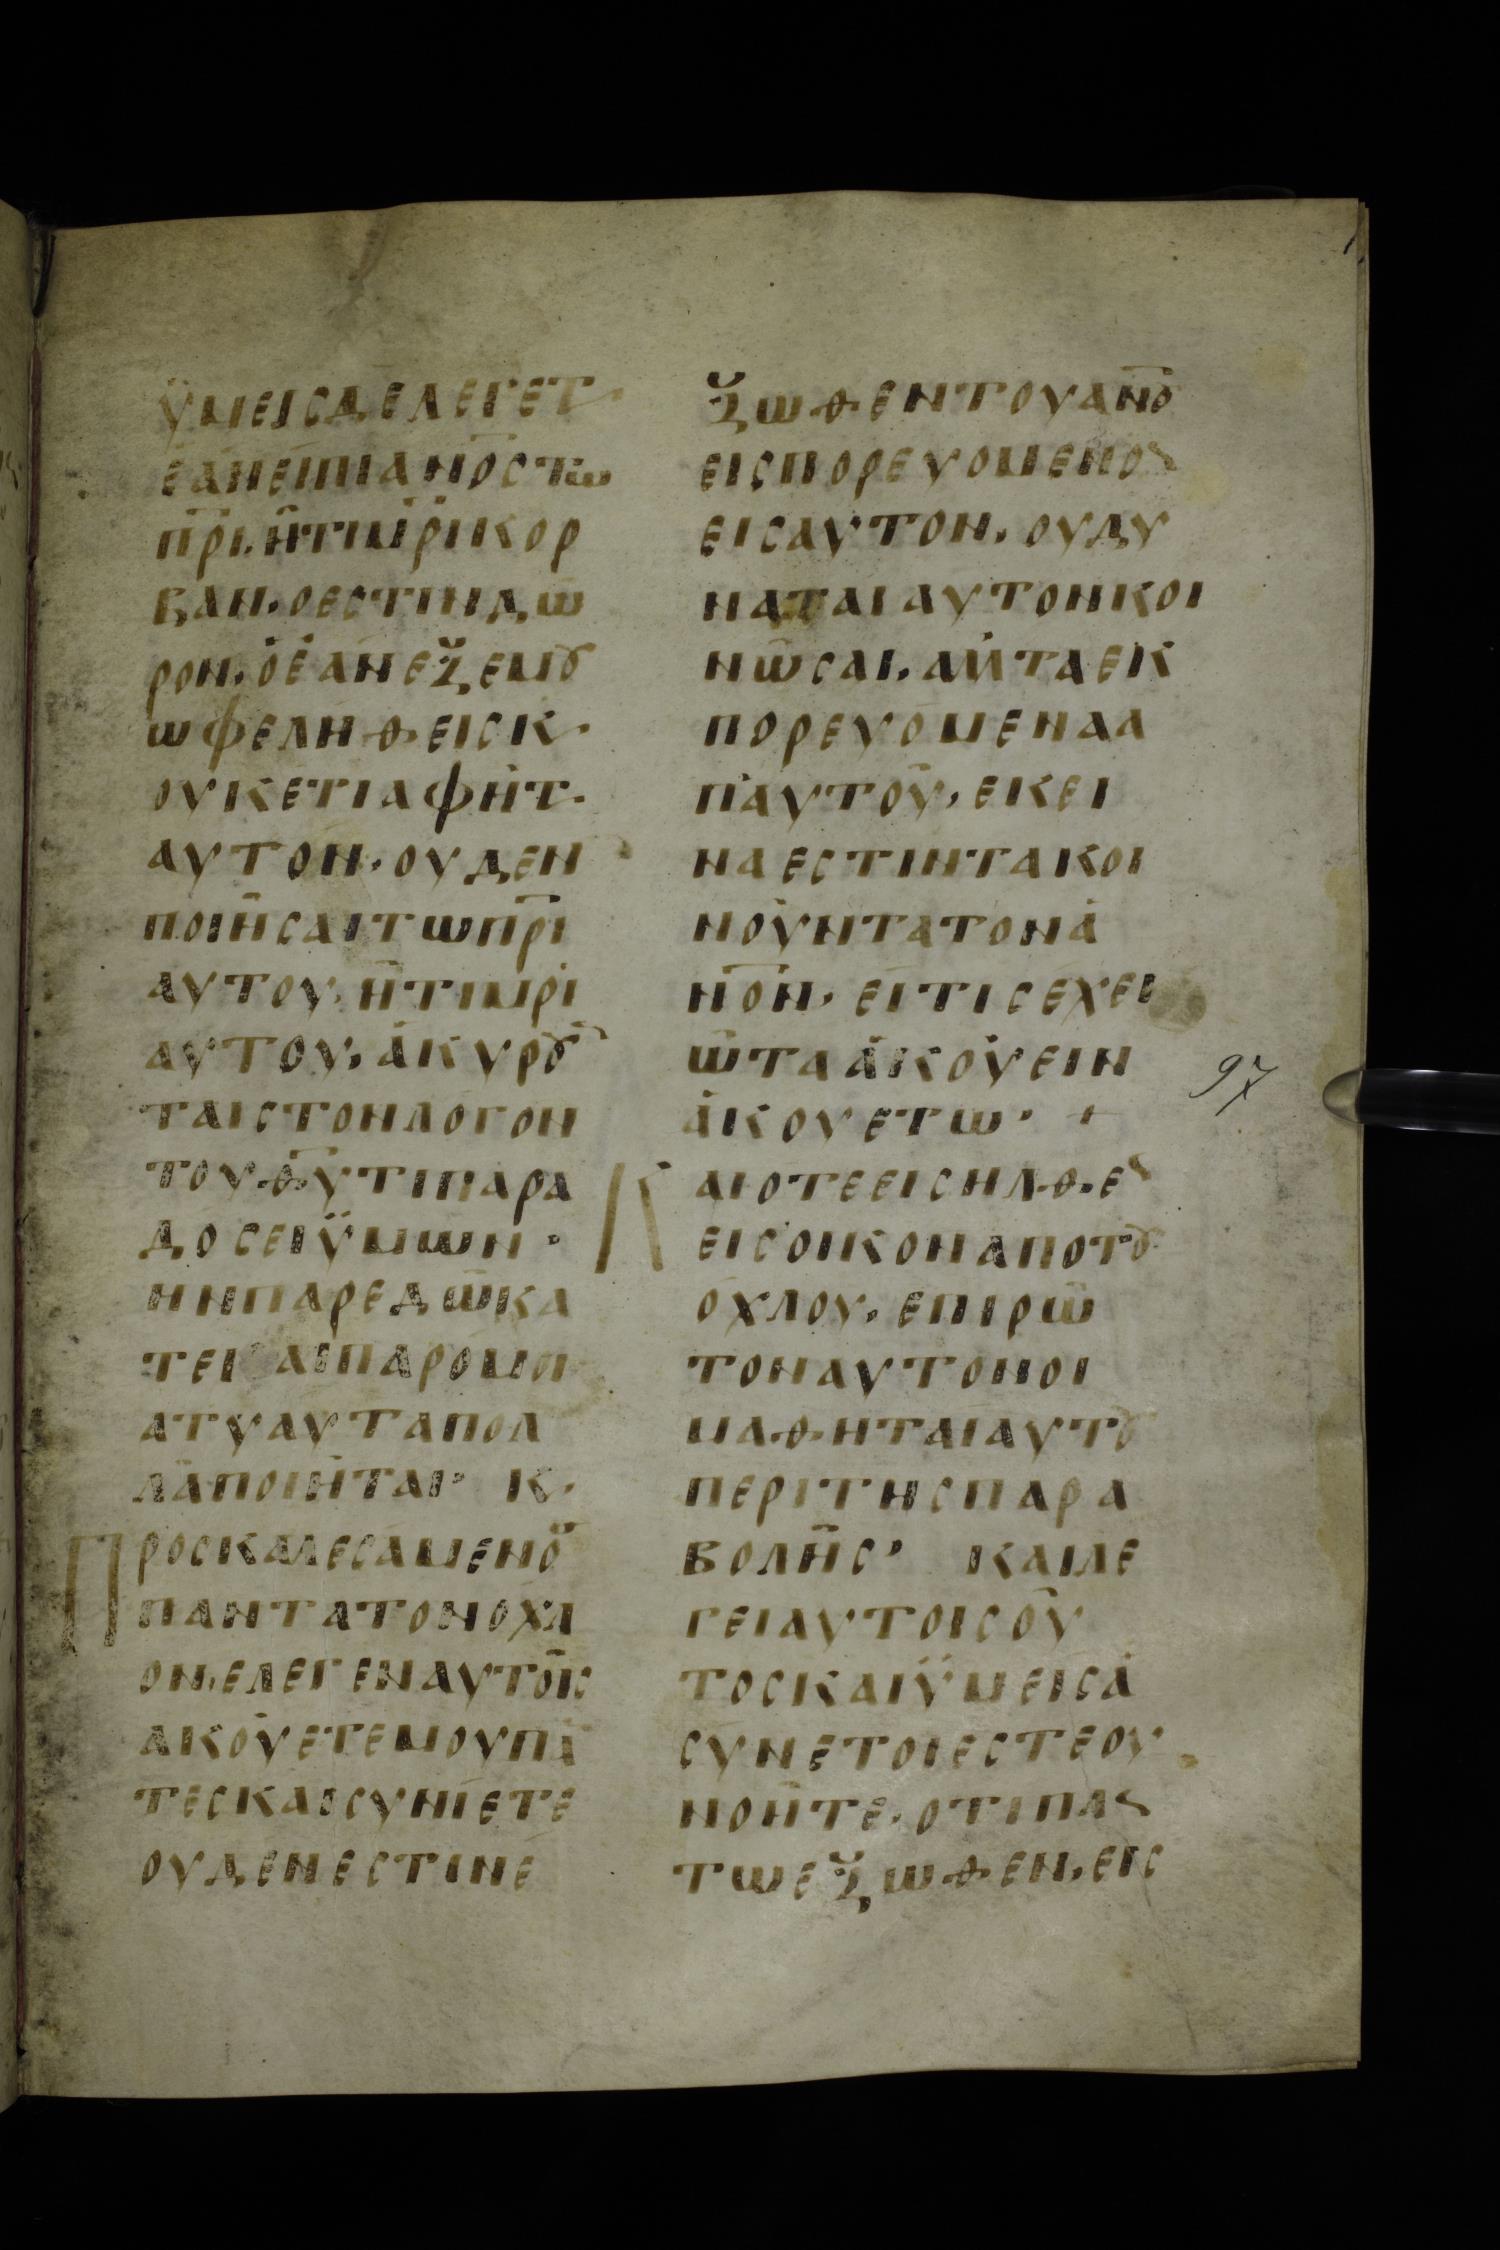 ΫΜΕΙϹΔΕΛΕΓΕΤ
ΕΑΝΕΙΠΙΑΝΟ̅Ϲ̅ΤΩ
Π̅Ρ̅Ι̅·ΗΤΙΜ̅Ρ̅Ι̅ΚΟΡ
ΒΑΝ·ΟΕϹΤΙΝΔΩ
ΡΟΝ·ΟΕΑΝΕΞΕΜȢ
ΩΦΕΛΗΘΕΙϹΚ·
ΟΥΚΕΤΙΑΦΗΤ·
ΑΥΤΟΝ·ΟΥΔΕΝ
ΠΟΙΗϹΑΙΤΩΠ̅Ρ̅Ι̅
ΑΥΤΟΥ·ΗΤΙΜΡΙ
ΑΥΤΟΥ·ΑΚΥΡȢ
ΤΑΙϹΤΟΝΛΟΓΟΝ
ΤΟΥΘ̅Υ̅ΤΙΠΑΡΑ
ΔΟϹΕΙΫΜΩΝ·
ΗΝΠΑΡΕΔΩΚΑ
ΤΕΙ ΑΙΠΑΡΟΜΠ
ΑΤΥΑΥΤΑΠΟΛ
ΛΑΠΟΙΗΤΑΙ· Κ·
ΠΡΟϹΚΑΛΕϹΑΜΕΝΟ
ΠΑΝΤΑΤΟΝΟΧΛ
ΟΝ·ΕΛΕΓΕΝΑΥΤΟΙϹ
ΑΚΟΥΕΤΕΜΟΥΠΑ
ΤΕϹΚΑΙϹΥΝΙΕΤΕ
ΟΥΔΕΝΕϹΤΙΝΕ
ΞΩΘΕΝΤΟΥΑ̅Ν̅Ο̅
ΕΙϹΠΟΡΕΥΟΜΕΝΟϹ
ΕΙϹΑΥΤΟΝ·ΟΥΔΥ
ΝΑΤΑΙΑΥΤΟΝΚΟΙ
ΝΩϹΑΙ·ΑΜΤΑΕΚ
ΠΟΡΕΥΟΜΕΝΑΑ
ΠΑΥΤΟΥ·ΕΚΕΙ
ΝΑΕϹΤΙΝΤΑΚΟΙ
ΝΟΥΝΤΑΤΟΝΑ
Ν̅Ο̅Ν̅·ΕΙΤΙϹΕΧΕΙ
ΩΤΑΑΚΟΥΕΙΝ
ΑΚΟΥΕΤΩ· +
97
ΚΑΙΟΤΕΕΙϹΗΛΘΕϹ
ΕΙϹΟΙΚΟΝΑΠΟΤȢ
ΟΧΛΟΥ·ΕΠΙΡΩ
ΤΟΝΑΥΤΟΝΟΙ
ΜΑΘΗΤΑΙΑΥΤȢ
ΠΕΡΙΤΗϹΠΑΡΑ
ΒΟΛΗϹ· ΚΑΙΛΕ
ΓΕΙΑΥΤΟΙϹΟΥ
ΤΟϹΚΑΙΫΜΕΙϹΑ
ϹΥΝΕΤΟΙΕϹΤΕΟΥ
ΝΟΗΤΕ·ΟΤΙΠΑϹ
ΤΩΕΞΩΘΕΝ·ΕΙϹ